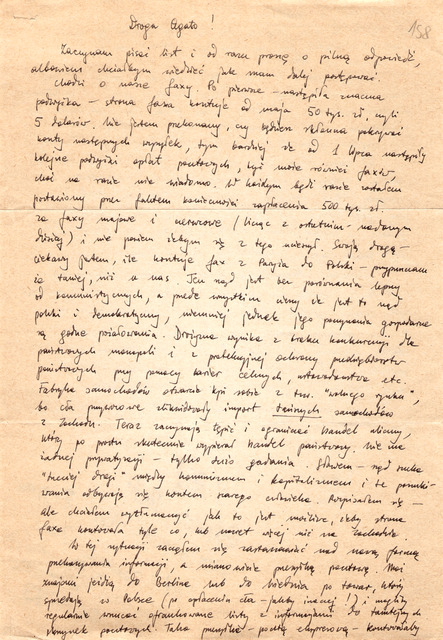 158
Droga Agato!
Zaczynam pisać list i od razu proszę o pilną odpowiedź,
albowiem chciałbym wiedzieć jak mam dalej postępować.
Chodzi o nasze faxy. Po pierwsze - nastąpiła znaczna
podwyżka - strona faxu kosztuje od maja 50 tys. zł, czyli
5 dolarów. Nie jestem przekonany, czy będziesz skłonna pokrywać
koszty następnych wysyłek, tym bardziej że od 1 lipca nastąpiły
kolejne podwyżki opłat pocztowych, być może również faxów,
choć na razie nie wiadomo. W każdym bądź razie zostałem
postawiony przed faktem konieczności zapłacenia 500 tys. zł
za faxy majowe i czerwcowe (licząc z ostatnim - nadanym
dzisiaj) i nie powiem żebym się z tego cieszył. Swoją drogą -
ciekawy jestem, ile kosztuje fax z Paryża do Polski - przypuszczam
że taniej, niż u nas. Ten rząd jest bez porównania lepszy
od komunistycznych, a przede wszystkim cieszy że jest to rząd
polski i demokratyczny, niemniej jednak jego posunięcia gospodarcze
są godne pożałowania. Drożyzna wynika z braku konkurencji dla
państwowych monopoli i z protekcyjnej ochrony przedsiębiorstw
państwowych przy pomocy barier celnych, ustawodawstwa etc.
Fabryka samochodów otwarcie kpi sobie z tzw. "wolnego rynku",
bo cła przywozowe zlikwidowały import tańszych samochodów
z Zachodu. Teraz zaczynają tępić i ograniczać handel uliczny,
który po prostu skutecznie wypierał handel państwowy. Nie ma
żadnej prywatyzacji - tylko dużo gadania. Słowem - rząd szuka
"trzeciej drogi" między komunizmem i kapitalizmem i te poszuki-
wania odbywają się kosztem szarego człowieka. Rozpisałem się -
ale chciałem wytłumaczyć jak to jest możliwe, żeby strona
faxu kosztowała tyle co, lub nawet więcej niż na Zachodzie.
W tej sytuacji zacząłem się zastanawiać nad nową formą
przekazywania informacji, a mianowicie przesyłką pocztową. Moi
znajomi jeżdżą do Berlina lub do Wiednia po towar, który
sprzedają w Polsce (po opłaceniu cła - jakby inaczej!) i mogliby
regularnie wrzucać ofrankowane listy z informacjami do tamtejszych
skrzynek pocztowych. Taka przesyłka - pocztą expresową - kosztowałaby